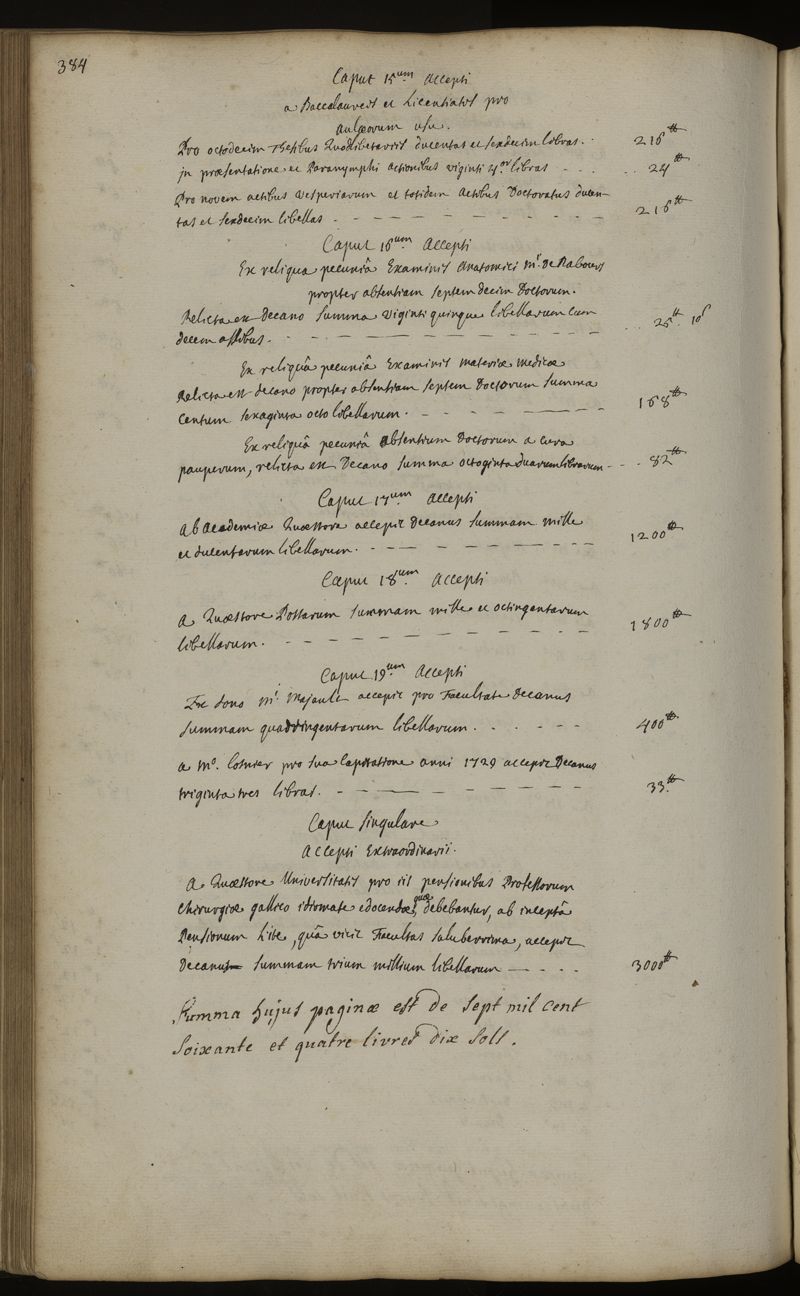 384
Caput 15um accepti
a Baccalaureis et Licentiatis pro
aulaeorum usu.
Pro octodecim Thesibus Quodlibetariis ducentas et sexdecim libras. . 216 ₶
jn praesentatione et Paranymphi actionibus viginti 4or libras - . . . . 24 ₶
Pro novem actibus vesperiarum et totidem actibus Doctoratus ducen-
tas et sexdecim libellas - - - - - - - - - 216 ₶
Caput 16um accepti
Ex reliqua pecuniâ Examinis anatomici Mr. De Rabours
propter absentiam septemdecim Doctorum.
Relicta est decano summa viginti quinque libellarum cum
decem assibus. - - - - - - - - - . . 25 ₶ 10 s
Ex reliquâ pecuniâ Examinis materiae medicae
Relicta est decano propter absentiam septem Doctorum summa
centum sexaginta octo libellarum. - - - - - - - 168 ₶
Ex reliquâ pecuniâ absentium Doctorum a cura
pauperum, relicta est Decano summa octoginta duarum librarum - - . 82 ₶
Caput 17um accepti
Ab Academiae Quaestore accepit Decanus summam mille
et ducentarum libellarum. - - - - - - - - 1200 ₶
Caput 18um accepti
a Quaestore Postarum summam mille et octingentarum
libellarum. - - - - - - - - - - 1800 ₶
Caput 19um accepti
Ex dono Mr. Majault accepit pro Facultate Decanus
summam quadringentarum libellarum. . . . - - - 400 ₶
a Mo. Cosnier pro sua Capitatione anni 1729 accepit Decanus
triginta tres libras. - - - - - - - - 33 ₶
Caput singulare
accepti Extraordinarii.
A Quaestore Universitatis pro iis pensionibus Professorum
Chirurgiae gallico idiomate edocendae, quae debebantur, ab inceptâ
Pensionum lite, quâ vicit Facultas saluberrima, accepit
Decanus summam trium millium libellarum - - - - 3000 ₶
Summa hujus paginae est de sept mil cent
soixante et quatre livres dix sols.